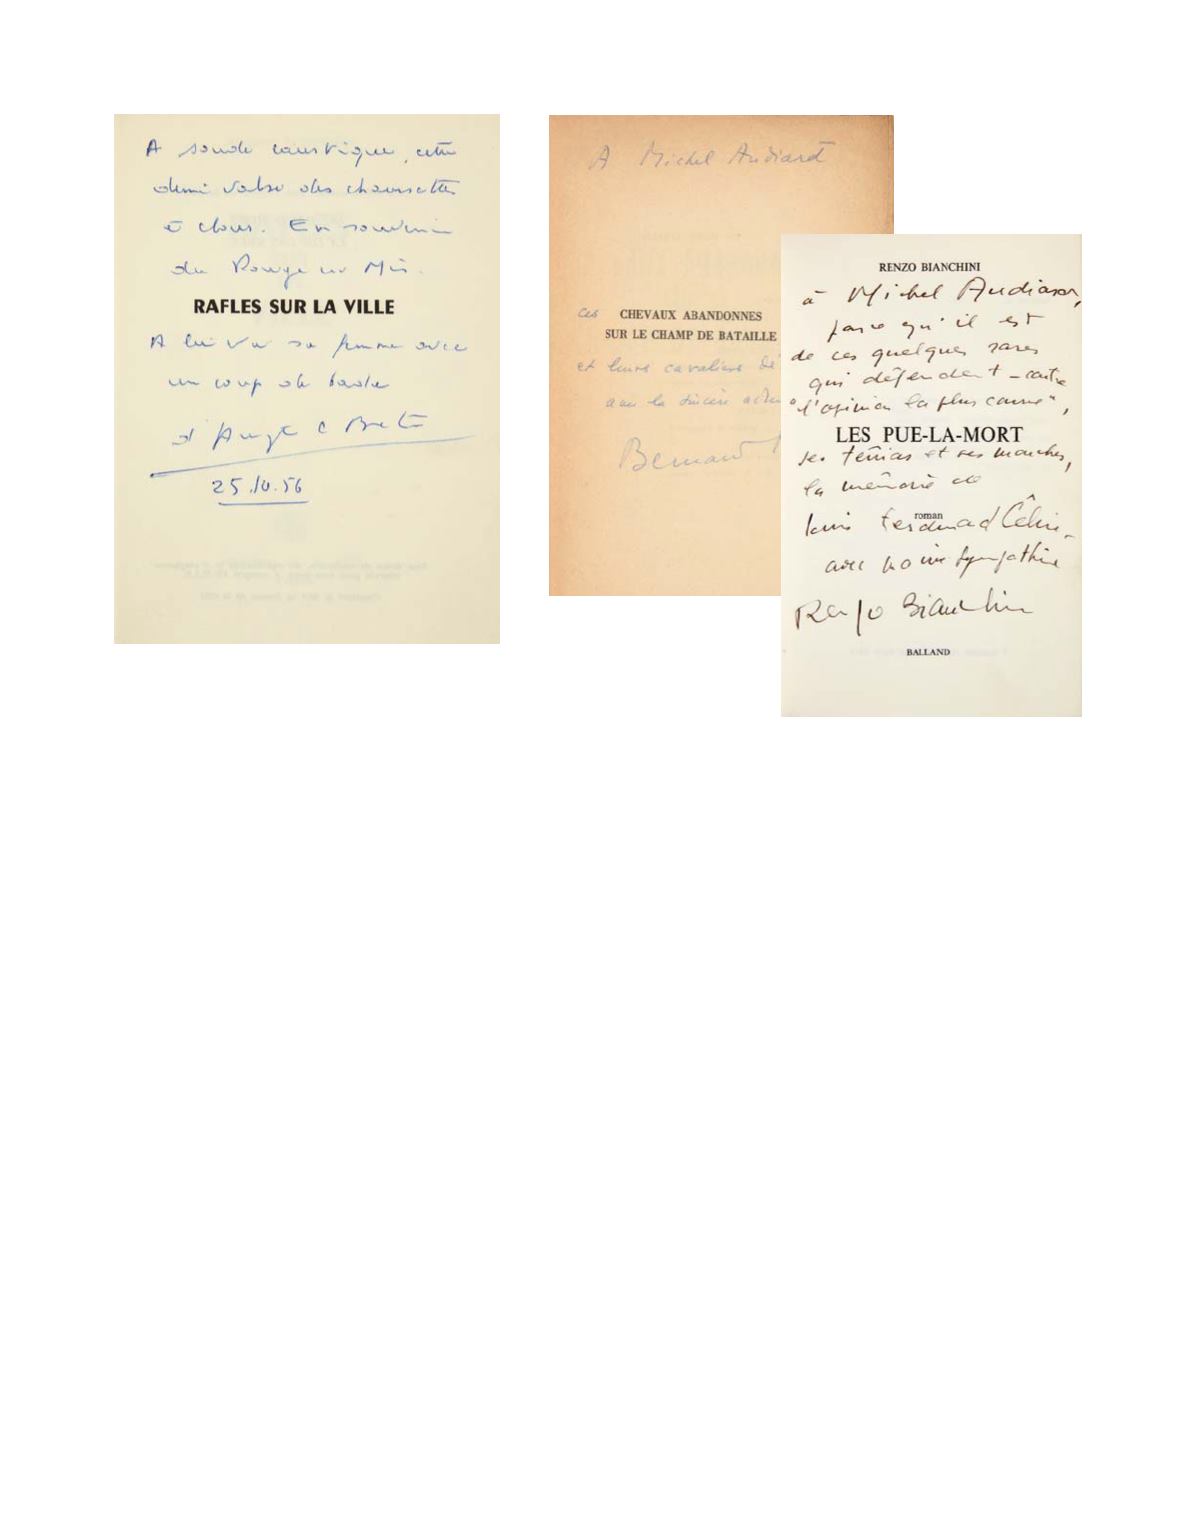 A soude caustique, cette
demi valse des chaussettes
à clous. En souvenir
du Rouge est Mis.
RAFLES SUR LA VILLE
A lui et sa femme avec
un coup de
d'Auguste le Breton
25.10.56
A Michel Audiard
ces CHEVAUX ABANDONNES
SUR LE CHAMP DE BATAILLE
et leurs cavaliers
avec la sincère
Bernard
RENZO BIANCHINI
à Michel Audiard,
parce qu'il est
de ces quelques rares
qui défendent - contre
"l'opinion la plus conne",
LES PUE-LA-MORT
ses et ses manches,
la mémoire de
roman
Louis Ferdinand Céline -
avec sympathie
Renzo Bianchini
BALLAND